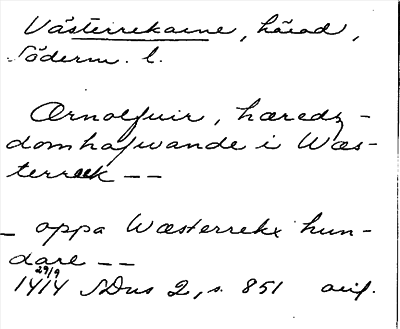 Västerrekarne, härad,
Söderm. l.
Arnolfuir, hæredz-
domhafwande i Wæs-
terreek --
_ oppa Wæsterrekæ hun-
dare --
29/9
1414 SDns 2, s. 851 avif.